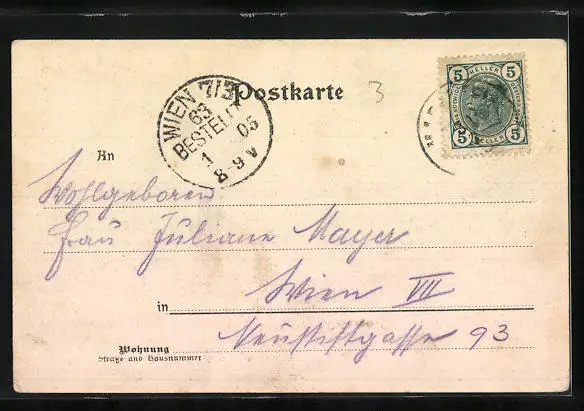 Postkarte
3
WIEN 7/3
63
BESTELLT
1 05
8-9 V
5 HELLER 5
5 HELLER 5
An
Wohlgeboren
Frau Juliane Mayer
in Wien VII
Neustiftgasse 93
Wohnung
Straße und Hausnummer